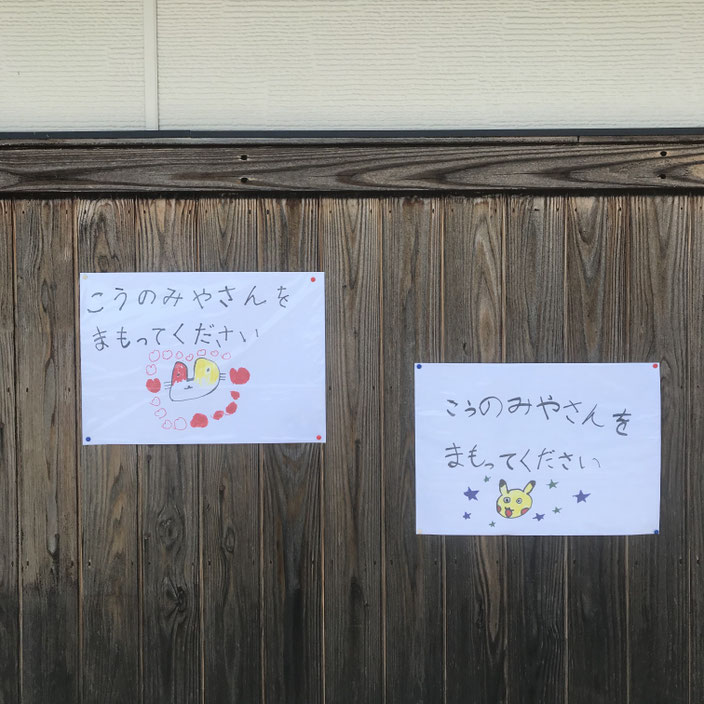 こうのみやさんを
まもってください
こうのみやさんを
まもってください